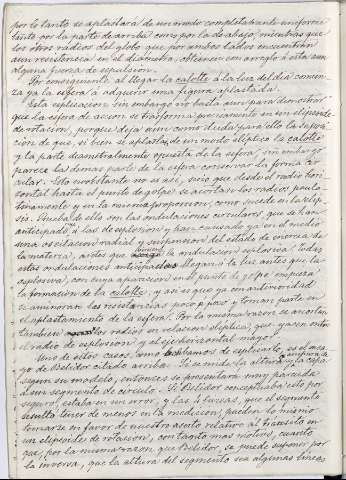 por lo tanto se aplastará de un modo completamente uniforme
tanto por la parte de arriba como por la de abajo, mientras que
los otros radios del globo que por ambos lados encuentran
aun resistencia en el diametro, obtienen con arreglo á esta aun
alguna fuerza de expulsion.
Por consiguiente al llegar la calotte á la luz del dia comien-
za ya la esfera á adquirir una figura aplastada.
Esta esplicacion sin embargo no basta aun para demostrar
que la esfera de accion se trasforma precisamente en un elipsoide
de rotacion, porque deja aun como duda para ello la suposi-
cion de que, si bien se aplasta de un modo elíptico la calotte
y la parte diametralmente opuesta de la esfera, sin embargo
parece las demas parte de la esfera conservan la forma cir-
cular. Esto no obstante no es asi, sino que desde el radio hori-
zontal hasta el punto de golpe se acortan los radios paula-
tinamente y en la misma proporcion, como sucede en la elip-
sis. Prueba de ello son las ondulaciones circulares, que se han
anticipado á las de esplosion y han causado ya en el medio
una oscilacion radial y suspension del estado de inercia de
la materia, antes que la ondulacion esplosiva. Todas
estas ondulaciones anticipadas llegan á la luz antes que la
esplosiva, con cuya aparicion en el punto de golpe empieza
la formacion de la calotte, y asi es que ya con anterioridad
se aminoran las resistencias poco á poco y toman parte en
el aplastamiento de la esfera. Por la misma razon se acortan
tambien los radios en relacion elíptica, que yacen entre
el radio de esplosion y el eje horizontal mayor.
Uno de estos casos, como acabamos de esplicarlo, es el ensa-
yo de Belidor citado arriba. Si se mide la altura de la capa
segun su modelo, entonces se presentará muy parecida
á un segmento de circulo. Si Belidor conceptuaba esto por
seguro, estaba en su error, y las líneas, que el segmento
resultó tener de menos en la medicion, pueden lo mismo
tomarse en favor de nuestro aserto relativo al tránsito en
un elipsoide de rotacion, con tanto mas motivo, cuanto
que, por la misma razon que Belidor, se puede suponer por
la inversa, que la altura del segmento sea algunas líneas